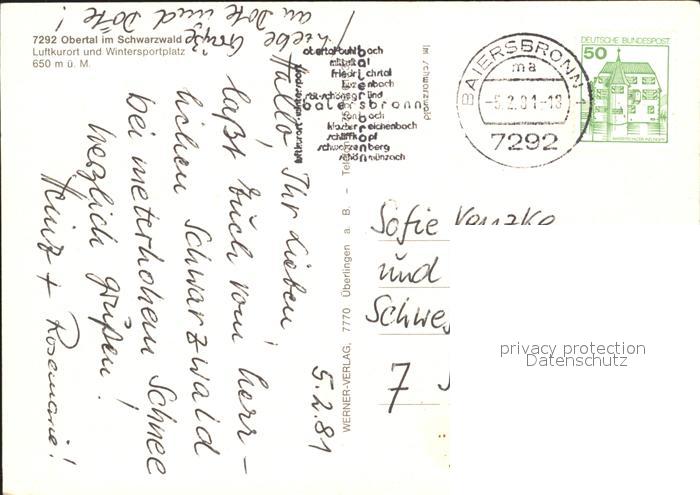 7292 Obertal im Schwarzwald
Luftkurort und Wintersportplatz
650 m ü. M.
5.2.81
Hallo, Ihr Lieben!
laßt Euch vom herr-
lichen Schwarzwald
bei meterhohem Schnee
herzlich grüßen!
Heinz + Rosemarie!
Liebe Grüße
an Dote und Döte!
WERNER-VERLAG, 7770 Überlingen a. B. -
im schwarzwald
obertal-buhlbach
mitteltal
friedrichstal
baiersbronn
klosterreichenbach
schwarzenberg
schönmünzach
luftkurort-wintersport
BAIERSBRONN 1
ma
-5.2.81-18
7292
DEUTSCHE BUNDESPOST
50
Sofie
und
7
privacy protection
Datenschutz